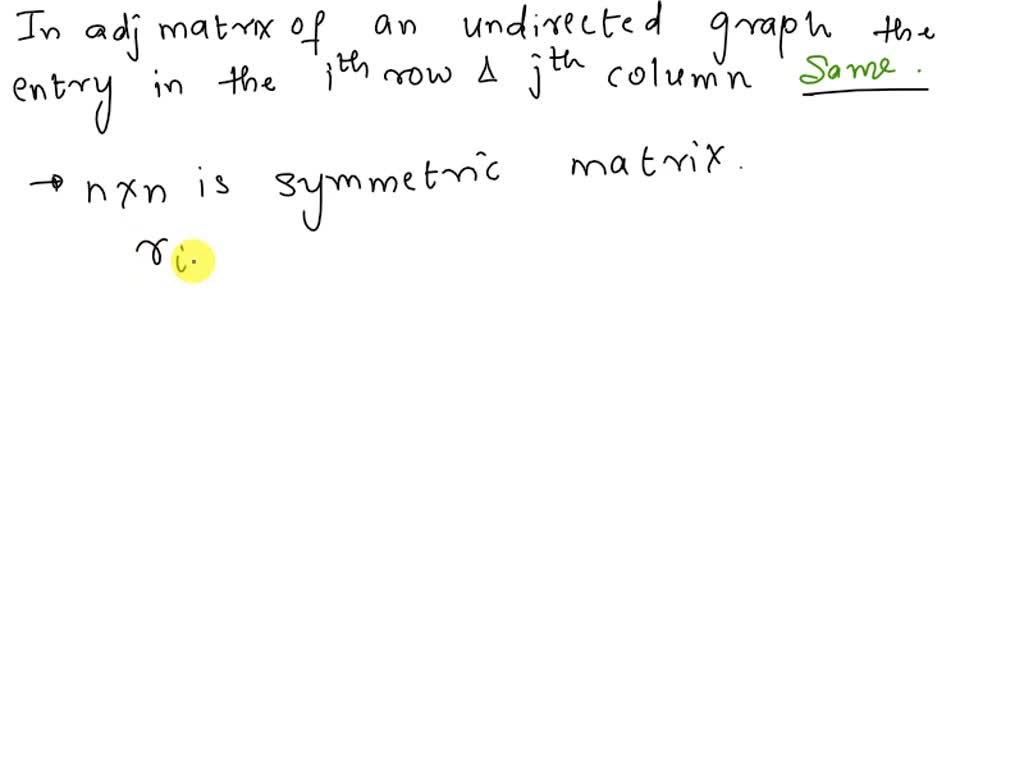 In adj matrix of an undirected graph the
entry in the ith row & jth column Same.
→ nxn is symmetric matrix.
ri.